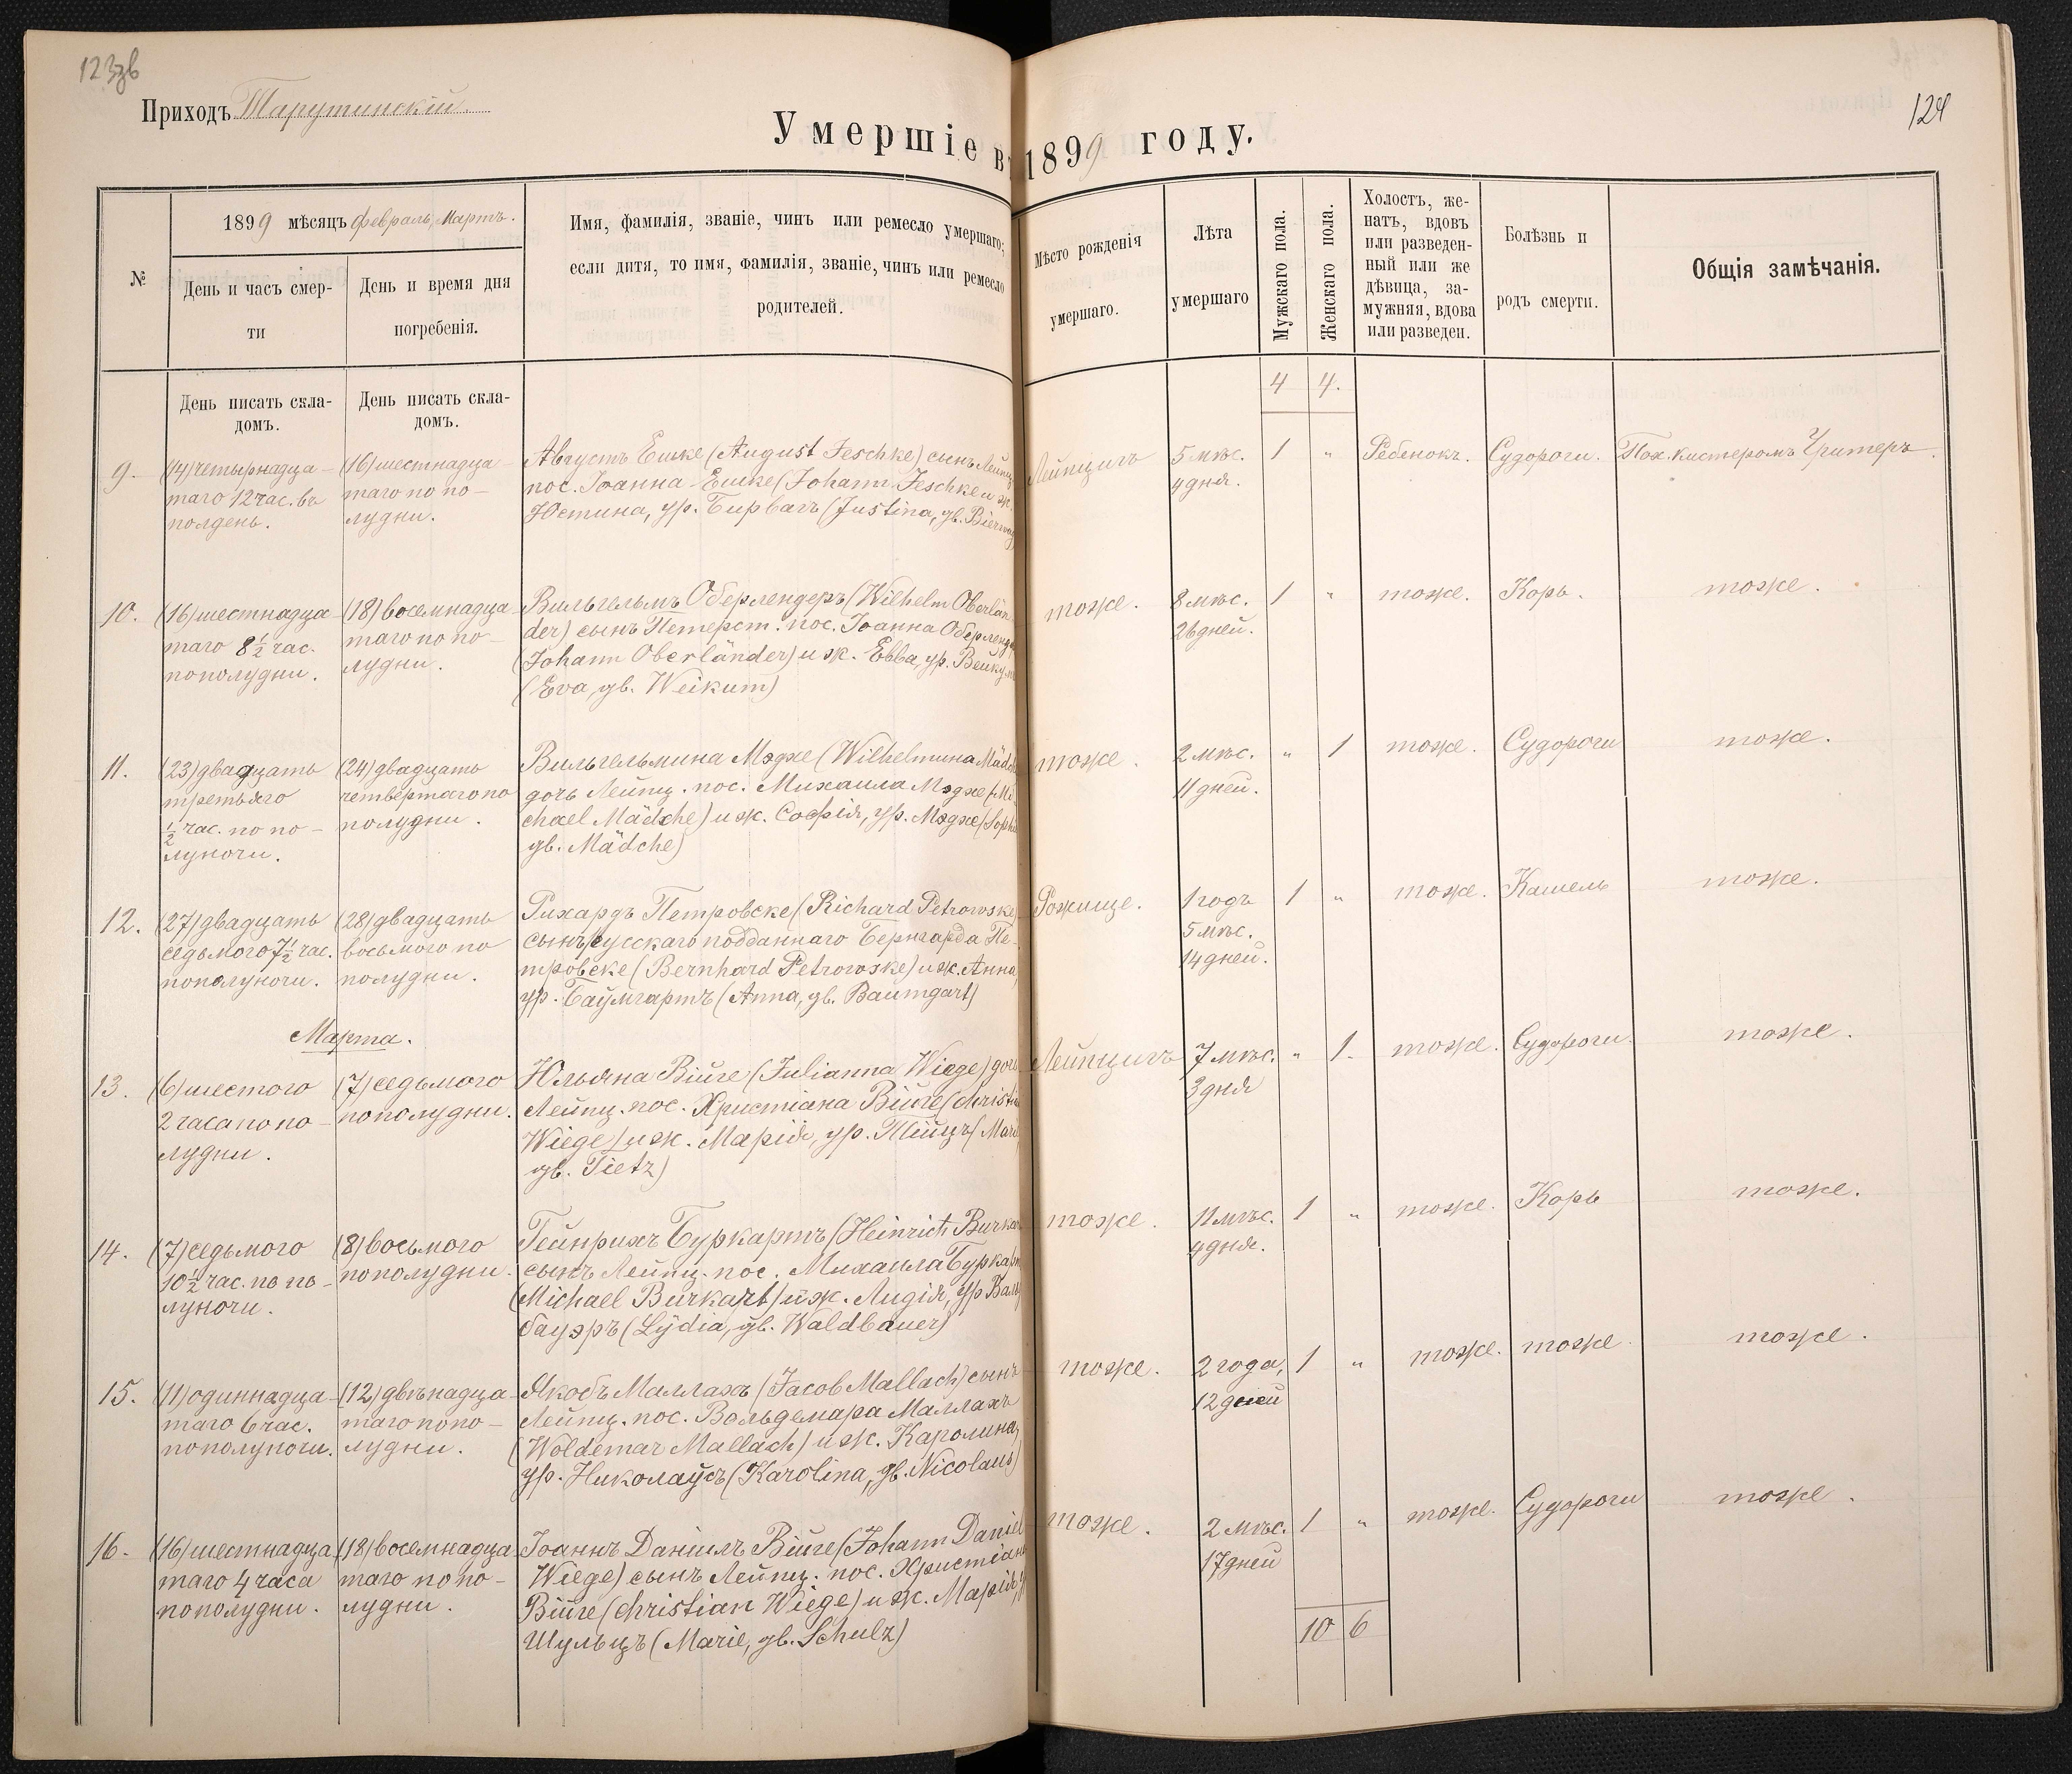 123зв
124
Приходъ Тарутинскій.
Умершіе въ 1899 году.
№
1899 мѣсяцъ Февраль, Мартъ.
День и часъ смер-
ти
День и время дня
погребенія.
Имя, фамилія, званіе, чинъ или ремесло умершаго;
если дитя, то имя, фамилія, званіе, чинъ или ремесло
родителей.
Мѣсто рожденія
умершаго.
Лѣта
умершаго
Мужскаго пола.
Женскаго пола.
Холостъ, же-
натъ, вдовъ
или разведен-
ный или же
дѣвица, за-
мужняя, вдова
или разведен.
Болѣзнь и
родъ смерти.
Общія замѣчанія.
День писать скла-
домъ.
День писать скла-
домъ.
4 4.
9.
(14) четырнадца-
таго 12 час. въ
полдень.
(16) шестнадца-
таго по по-
лудни.
Августъ Ешке (August Jeschke) сынъ Лейпц.
пос. Іоанна Ешке (Johann Jeschke и ж.
Юстина, ур. Бирвагъ (Justina, gb. Bierwag)
Лейпцигъ
5 мѣс.
4 дня.
1 "
Ребенокъ.
Судороги.
Пох. кистеромъ
10.
(16) шестнадца-
таго 8 1/2 час.
пополудни.
(18) восемнадца-
таго по по-
лудни.
Вильгельмъ Оберлендеръ (Wilhelm Oberlän-
der) сынъ Петерст. пос. Іоанна Оберлендеръ
(Johann Oberländer) и ж. Евва, ур. Вейкумъ
(Eva, gb. Weikum)
тоже.
8 мѣс.
26 дней.
1 "
тоже.
Корь.
тоже.
11.
(23) двадцать
третьяго
1/2 час. по по-
луночи.
(24) двадцать
четвертаго по
полудни.
Вильгельмина Мэдхе (Wilhelmina Mädche
дочь Лейпц. пос. Михаила Мэдхе (Mi-
chael Mädche) и ж. Софія, ур. Мэдхе (Sophia
gb. Mädche)
тоже.
2 мѣс.
11 дней.
" 1
тоже.
Судороги
тоже.
12.
(27) двадцать
седьмого 7 1/2 час.
пополуночи.
(28) двадцать
восьмого по
полудни.
Рихардъ Петровске (Richard Petrowske)
сынъ русскаго подданнаго Бернгарда Пе-
тровске (Bernhard Petrowske) и ж. Анна,
ур. Баумгартъ (Anna, gb. Baumgart)
Рожище.
1 годъ
5 мѣс.
14 дней.
1 "
тоже.
Кашель
тоже.
Марта.
13.
(6) шестого
2 часа по по-
лудни.
(7) седьмого
пополудни.
Юльяна Війге (Julianna Wiege) дочь
Лейпц. пос. Христіана Війге (Christian
Wiege) и ж. Марія, ур. Тійцъ (Marie,
gb. Tietz)
Лейпцигъ
7 мѣс.
3 дня
" 1.
тоже.
Судороги.
тоже.
14.
(7) седьмого
10 1/2 час. по по-
луночи.
(8) восьмого
пополудни.
Гейнрихъ Буркартъ (Heinrich Burkart
сынъ Лейпц. пос. Михаила Буркартъ
(Michael Burkart) и ж. Лидія, ур Вальд
бауэръ (Lydia, gb. Waldbauer)
тоже.
11 мѣс.
4 дня.
1 "
тоже.
Корь
тоже.
15.
(11) одиннадца-
таго 6 час.
пополуночи.
(12) двѣнадца-
таго по по-
лудни.
Якобъ Маллахъ (Jacob Mallach) сынъ
Лейпц. пос. Вольдемара Маллахъ
(Woldemar Mallach) и ж. Каролина,
ур. Николаусъ (Karolina, gb. Nicolaus)
тоже.
2 года,
12 дней
1 "
тоже.
тоже.
тоже.
16.
(16) шестнадца-
таго 4 часа
пополудни.
(18) восемнадца-
таго по по-
лудни.
Іоаннъ Даніилъ Війге (Johann Daniel
Wiege) сынъ Лейпц. пос. Христіана
Війге (Christian Wiege) и ж. Марія,
Шульцъ (Marie, gb. Schulz)
тоже.
2 мѣс.
17 дней
1 "
тоже.
Судороги
тоже.
10 6